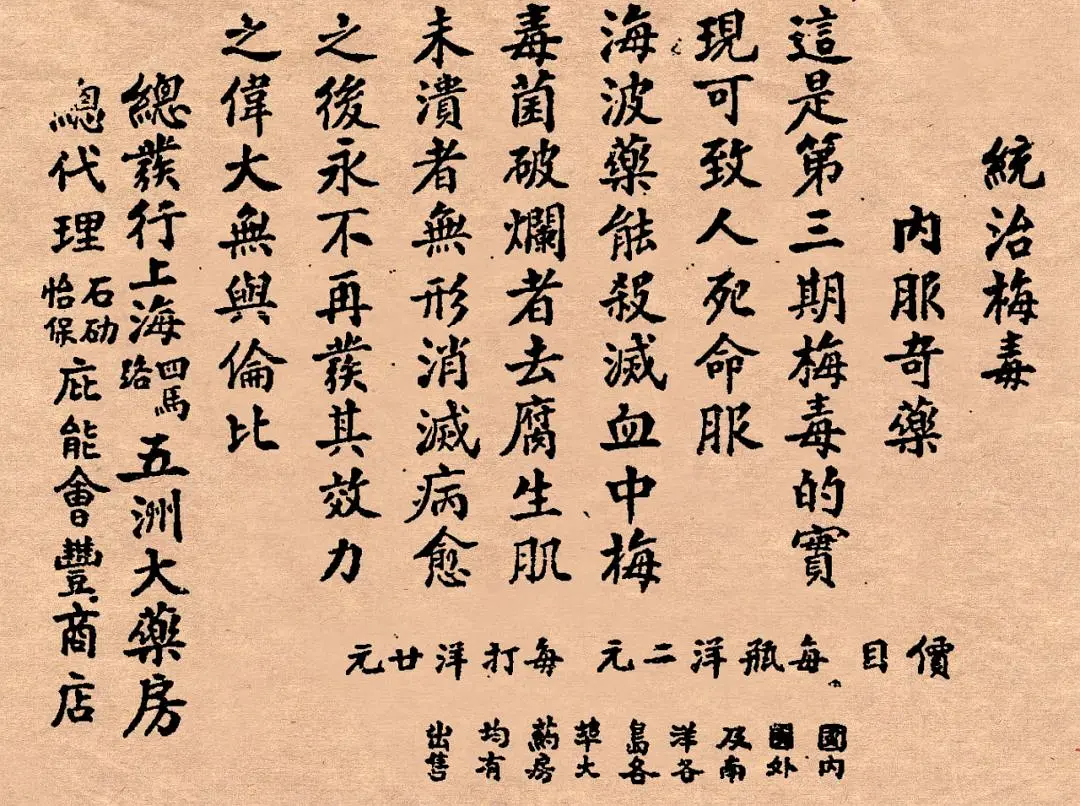 統治梅毒
內服奇藥
這是第三期梅毒的實
現可致人死命服
海波藥能殺滅血中梅
毒菌破爛者去腐生肌
未潰者無形消滅病愈
之後永不再發其效力
之偉大無與倫比
總發行上海四馬路五洲大藥房
總代理石叻怡保庇能會豐商店
價目 每瓶洋二元 每打洋廿元
國內國外及南洋各島各埠大葯房均有出售